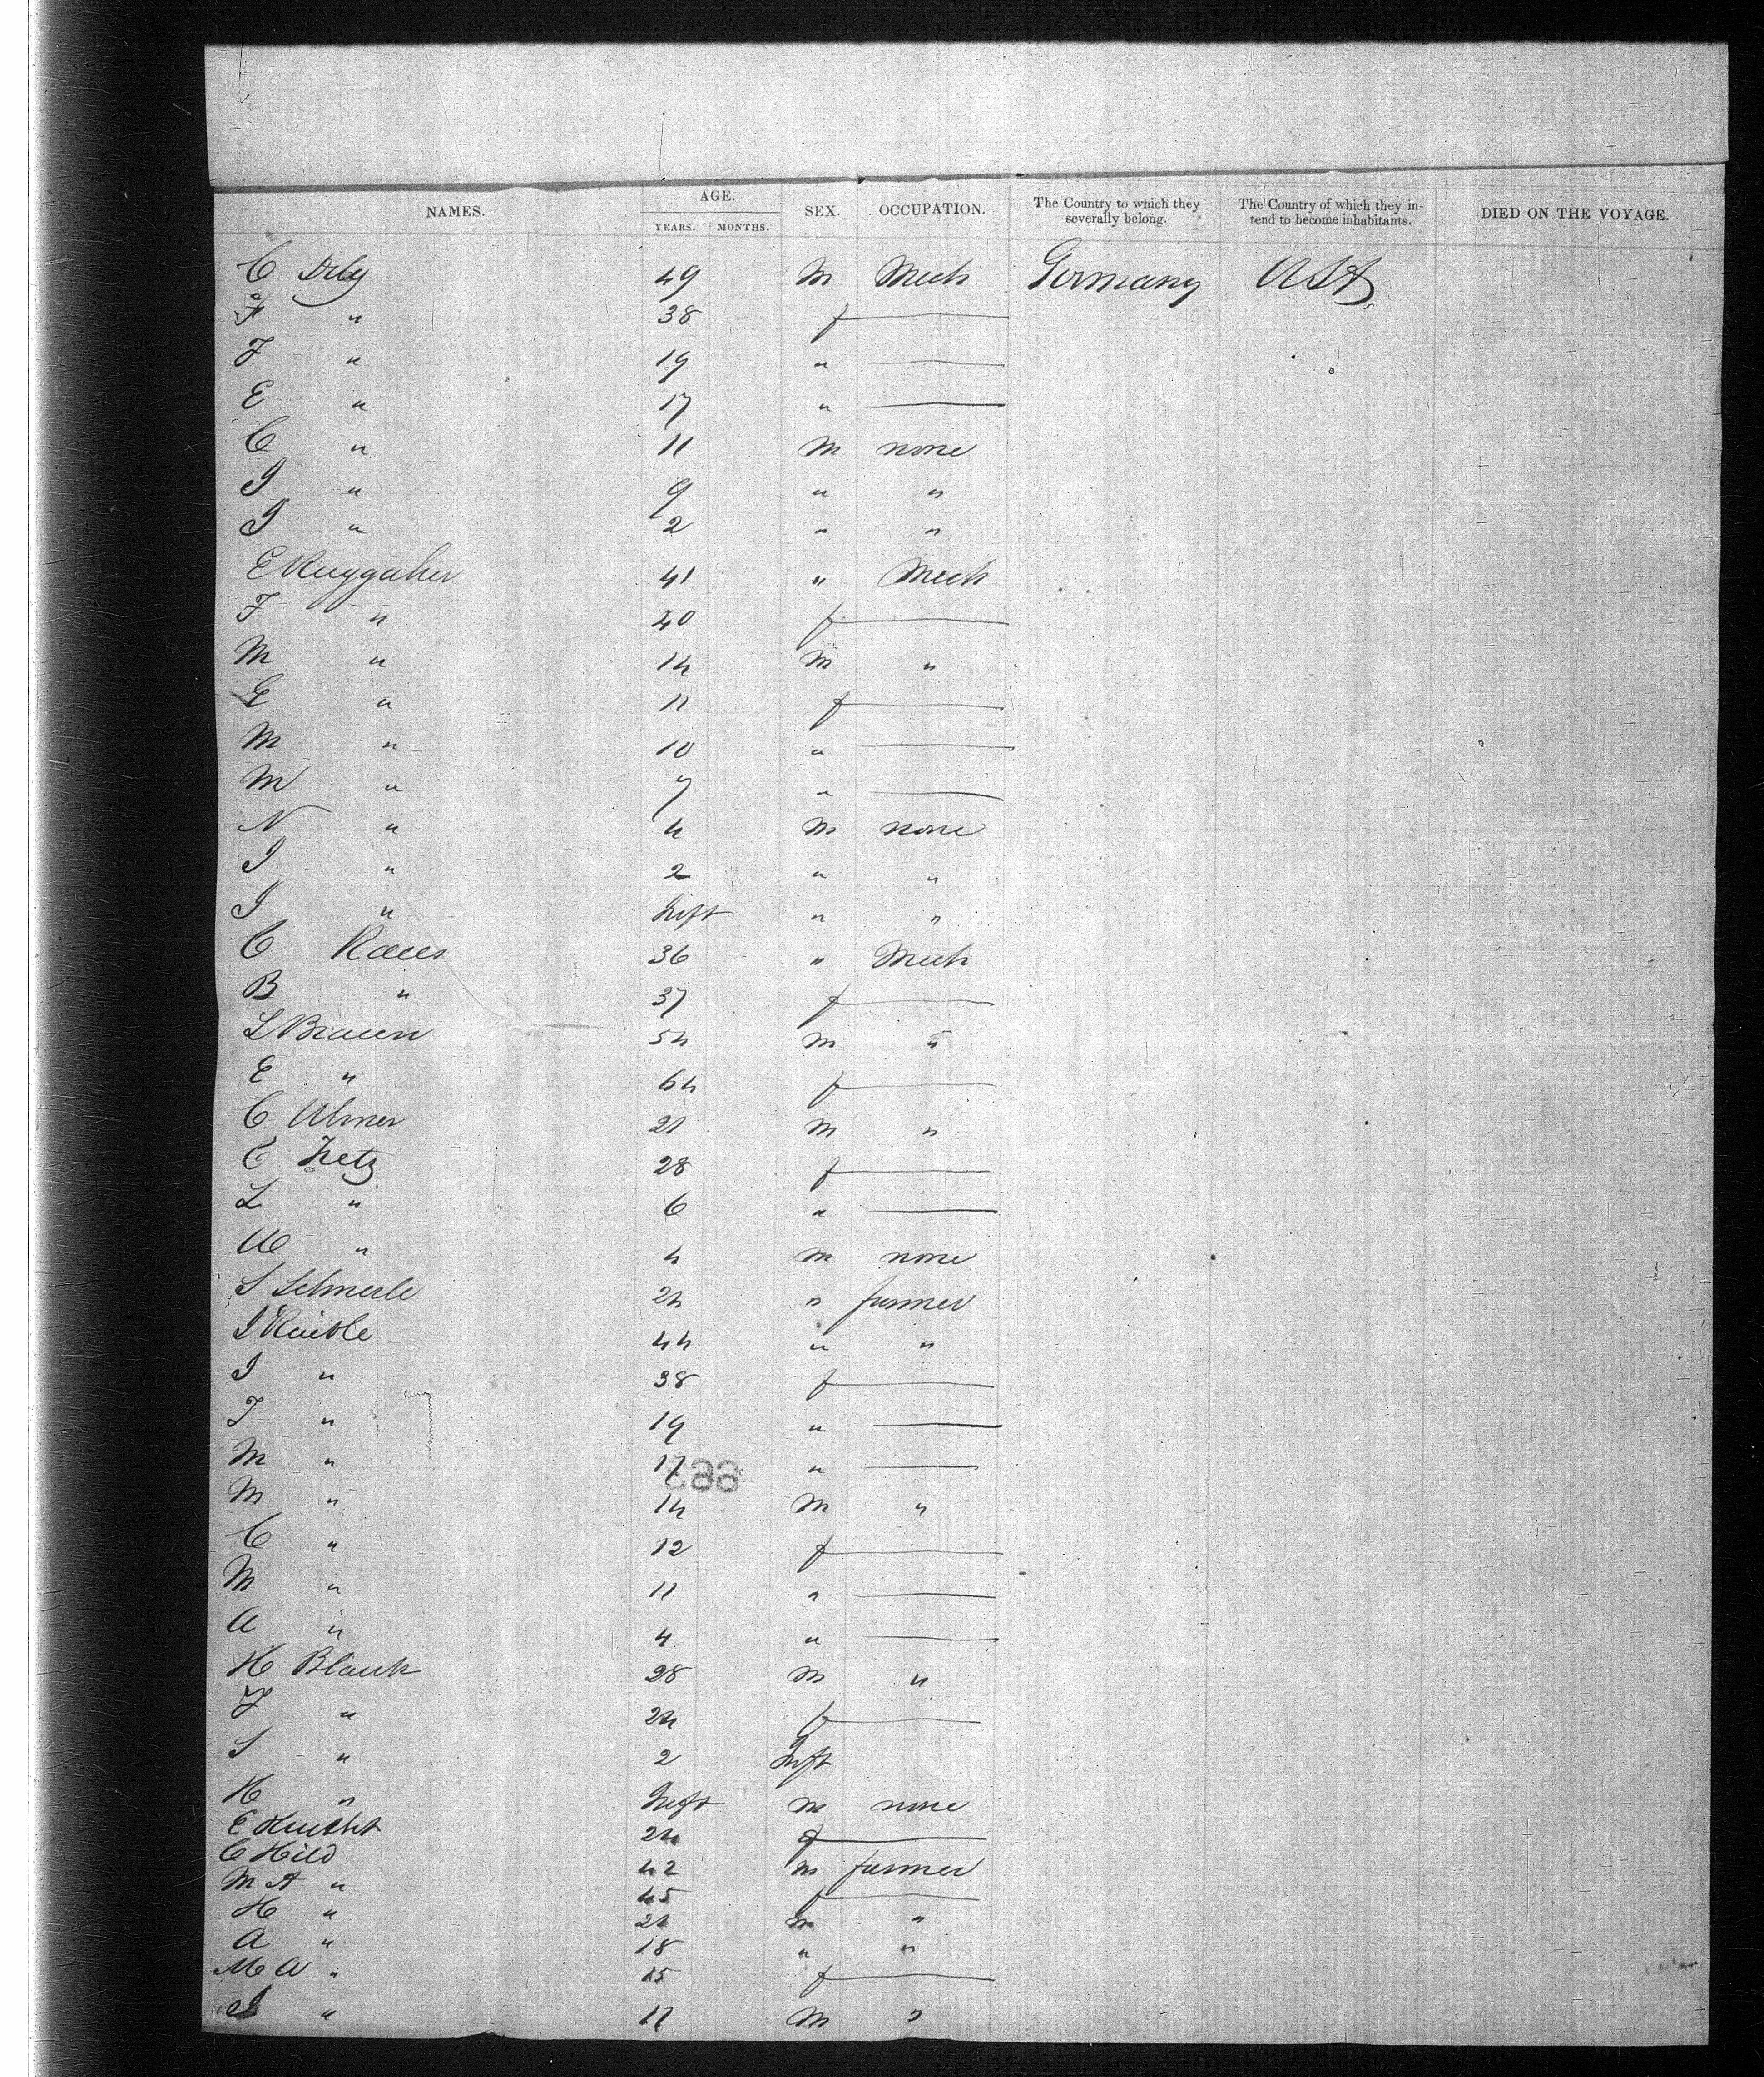 NAMES. AGE. SEX. OCCUPATION. The Country to which they severally belong. The Country of which they intend to become inhabitants. DIED ON THE VOYAGE.
YEARS. MONTHS.
C 49 M Mech Germany USA
F " 38 f
F " 19 "
E " 17 "
C " 11 M none
J " 9 " "
J " 2 " "
E 41 " Mech
F " 40 f
M " 14 M "
E " 11 f
M " 10 "
M " 7 "
N " 4 M none
J " 2 " "
J " Inft " "
C 36 " Mech
B " 37 f
L Braun 54 M "
E " 64 f
C Ulmer 21 M "
C 28 f
L " 6 "
W " 4 M none
S 24 " farmer
J Raible 44 " "
J " 38 f
F " 19 "
M " 17 "
M " 14 M "
C " 12 f
M " 11 "
A " 4 "
H Blank 28 M "
F " 24 f
S " 2 Inft
H " Inft M none
E Knecht 24 f
C Hild 42 M farmer
M A " 45 f
H " 21 M "
A " 18 " "
M A " 15 f
J " 11 M "